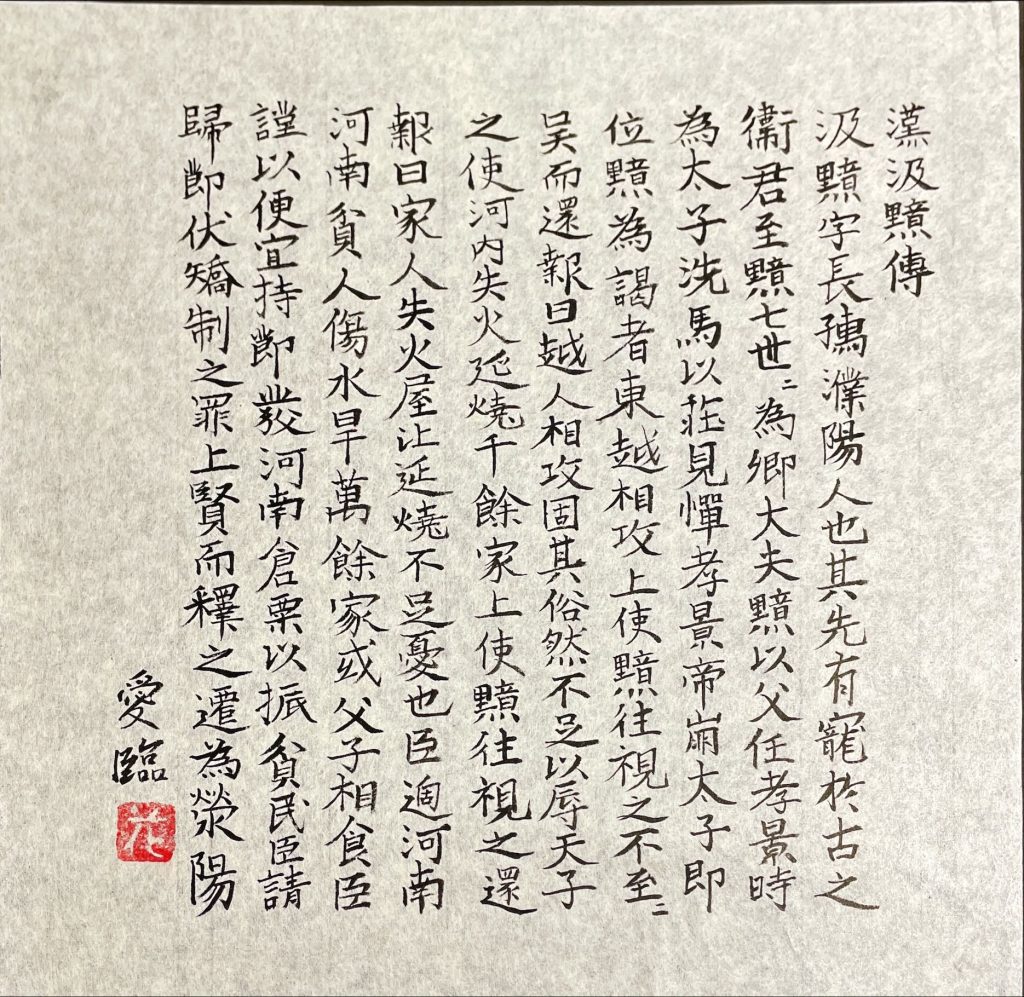 漢汲黯傳
汲黯字長孺濮陽人也其先有寵於古之
衞君至黯七世〻為卿大夫黯以父任孝景時
為太子洗馬以莊見憚孝景帝崩太子即
位黯為謁者東越相攻上使黯往視之不至〻
吳而還報曰越人相攻固其俗然不足以辱天子
之使河內失火延燒千餘家上使黯往視之還
報曰家人失火屋比延燒不足憂也臣過河南
河南貧人傷水旱萬餘家或父子相食臣
謹以便宜持節發河南倉粟以振貧民臣請
歸節伏矯制之罪上賢而釋之遷為滎陽
愛臨
花